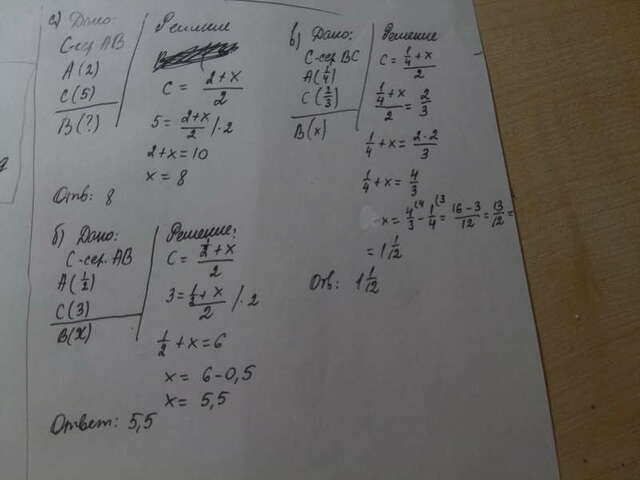 а) Дано:
С-сер AB
A(2)
C(5)
B(?)
Решение
C = (2+x)/2
5 = (2+x)/2 /·2
2+x=10
x = 8
Отв: 8
б) Дано:
С-сер. AB
A(1/2)
C(3)
B(x)
Решение:
C = (1/2+x)/2
3 = (1/2+x)/2 /·2
1/2 + x = 6
x = 6-0,5
x = 5,5
Ответ: 5,5
в) Дано:
С-сер BC
A(1/4)
C(2/3)
B(x)
Решение
C = (1/4+x)/2
(1/4+x)/2 = 2/3
1/4 + x = 2·2/3
1/4 + x = 4/3
x = 4/3 (4 - 1/4 (3 = 16-3/12 = 13/12 =
= 1 1/12
Отв: 1 1/12